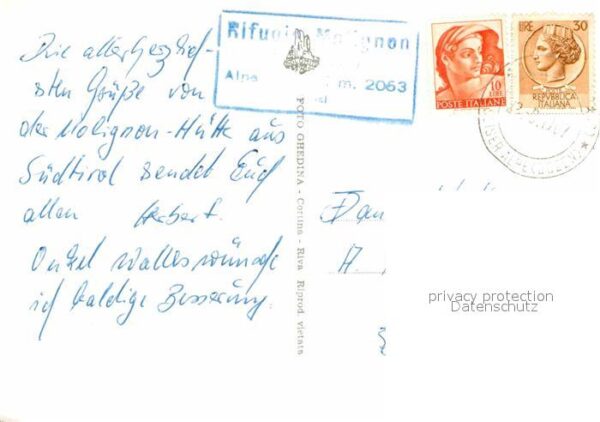 Die allerherzlich-
sten Grüße von
der Molignon-Hütte aus
Südtirol sendet Euch
allen Herbert.
Onkel Walles wünsche
ich baldige Besserung.
Rifugio Molignon
Alpe m. 2063
FOTO GHEDINA - Cortina - Riva Riprod. vietata
10
LIRE
POSTE ITALIANE
LIRE 30
REPVBBLICA
ITALIANA
privacy protection
Datenschutz